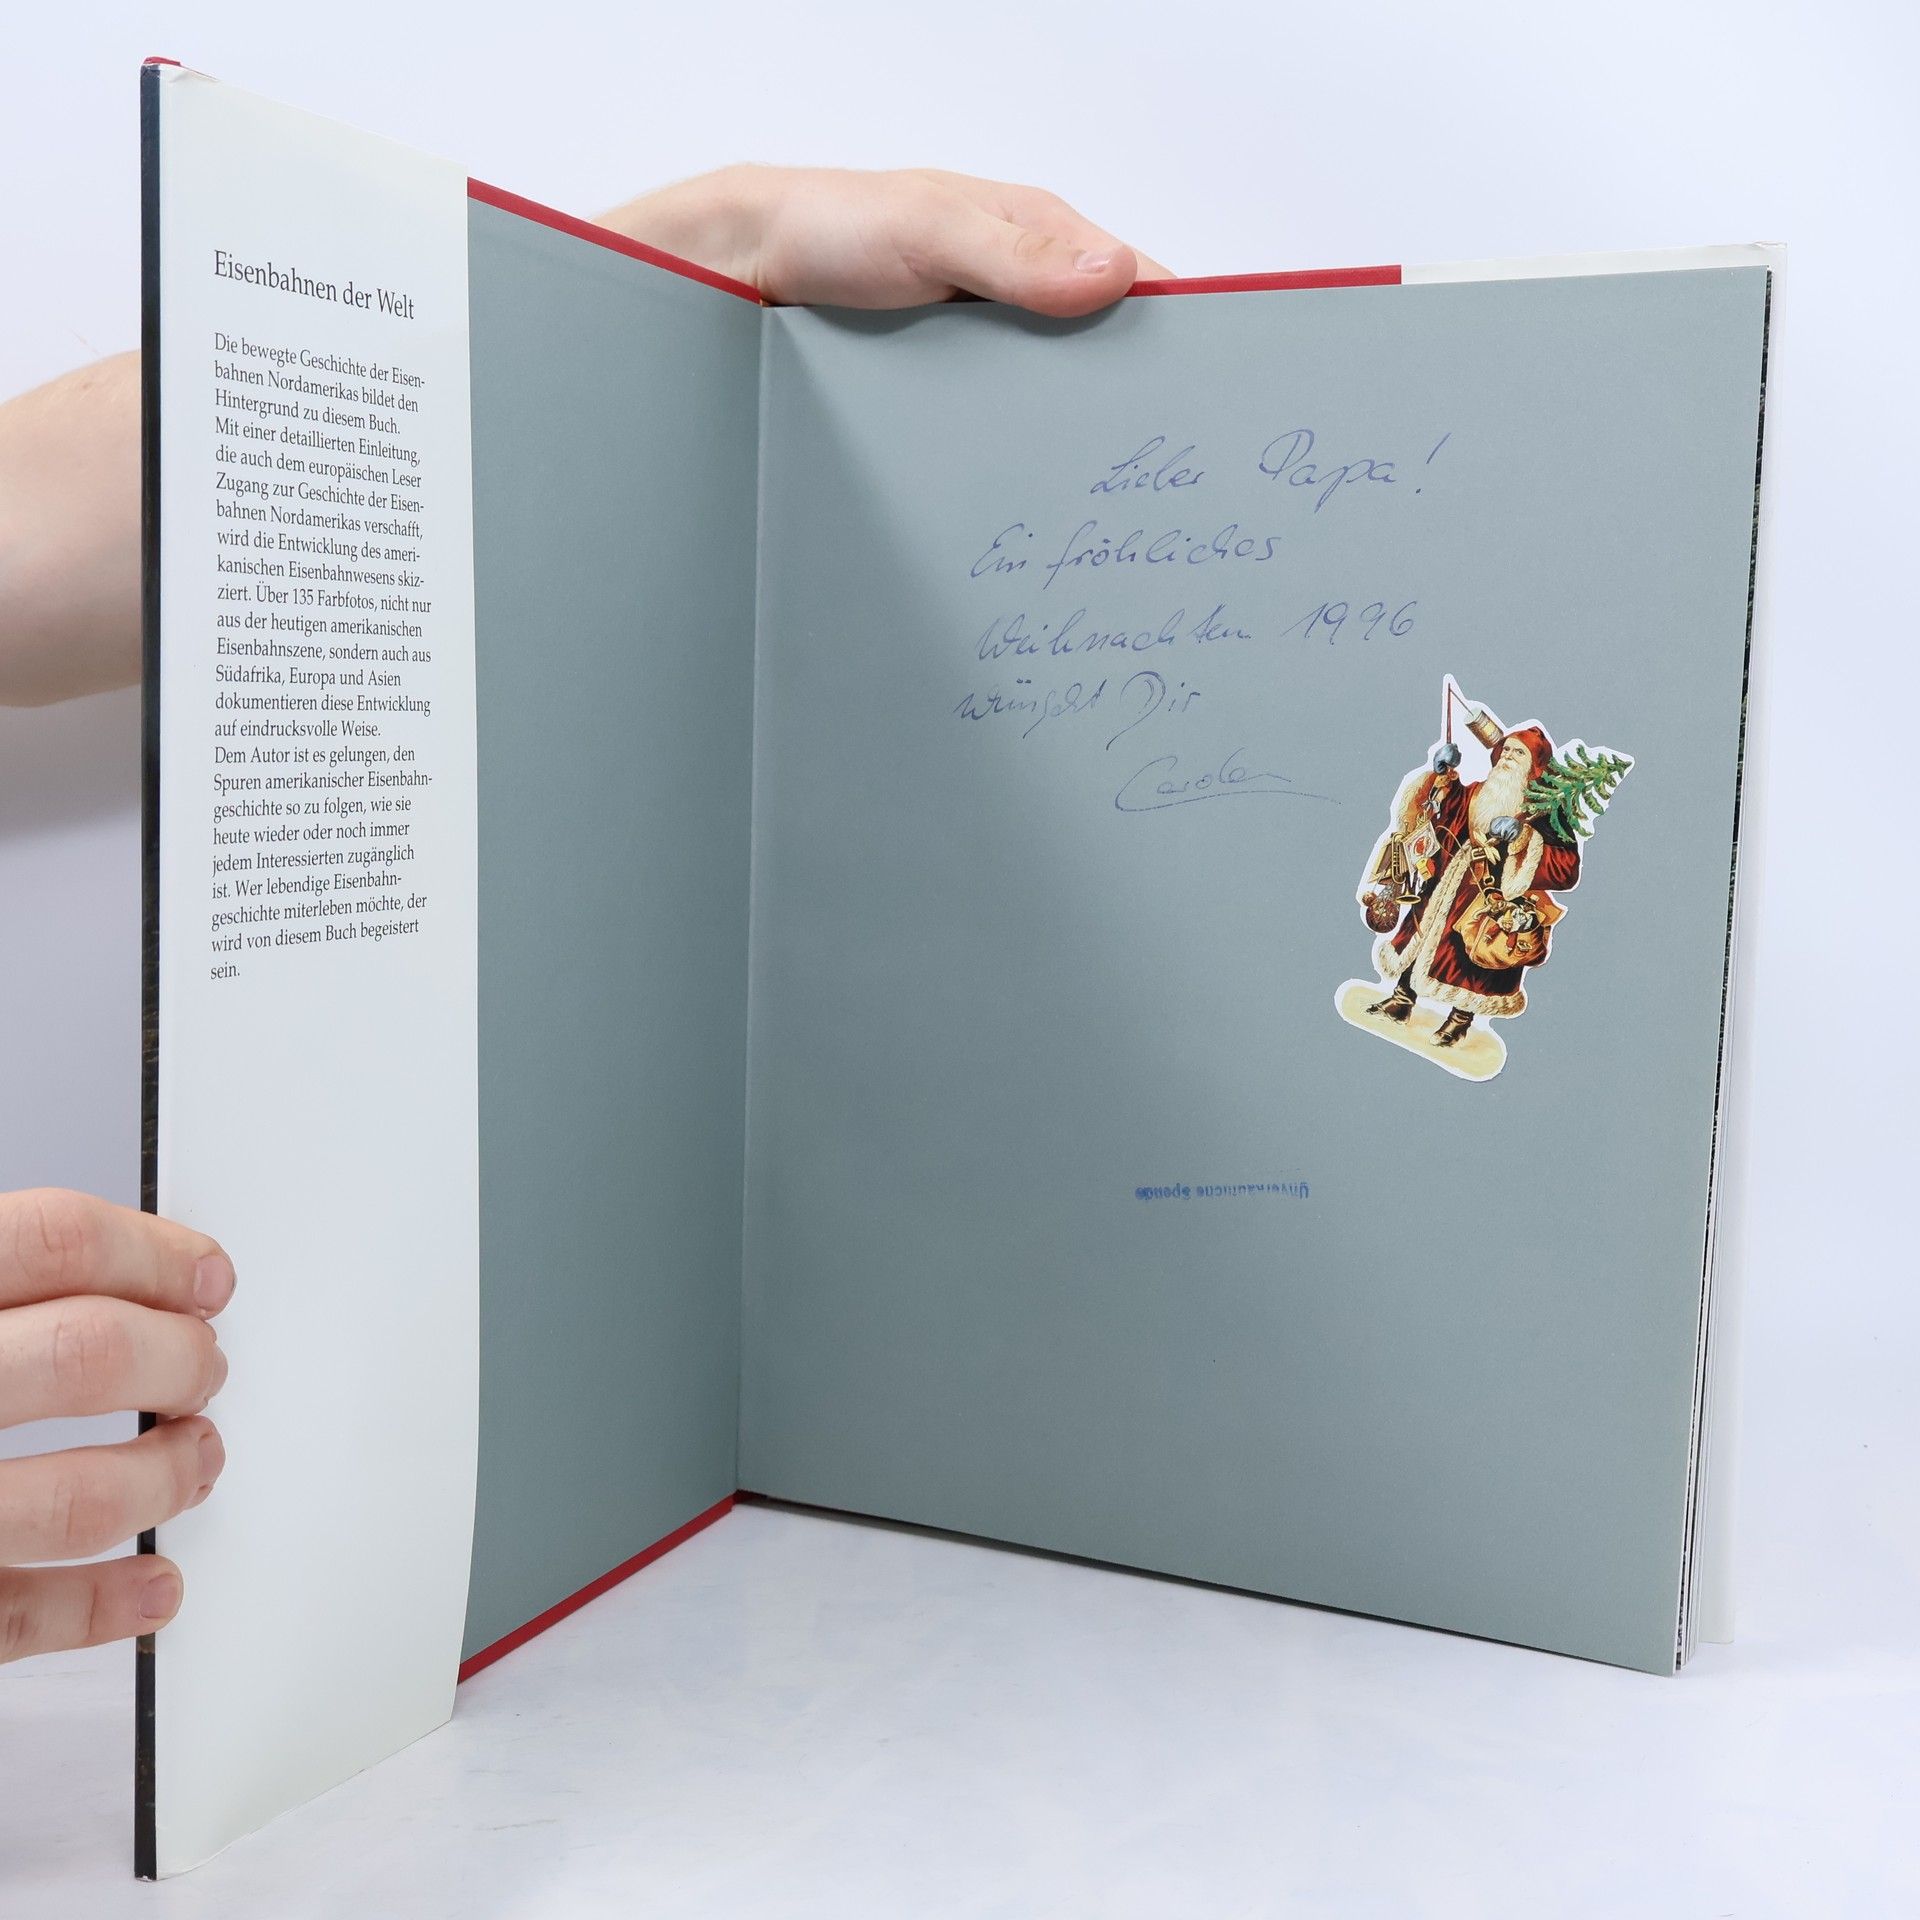 Eisenbahnen der Welt
Die bewegte Geschichte der Eisen-
bahnen Nordamerikas bildet den
Hintergrund zu diesem Buch.
Mit einer detaillierten Einleitung,
die auch dem europäischen Leser
Zugang zur Geschichte der Eisen-
bahnen Nordamerikas verschafft,
wird die Entwicklung des ameri-
kanischen Eisenbahnwesens skiz-
ziert. Über 135 Farbfotos, nicht nur
aus der heutigen amerikanischen
Eisenbahnszene, sondern auch aus
Südafrika, Europa und Asien
dokumentieren diese Entwicklung
auf eindrucksvolle Weise.
Dem Autor ist es gelungen, den
Spuren amerikanischer Eisenbahn-
geschichte so zu folgen, wie sie
heute wieder oder noch immer
jedem Interessierten zugänglich
ist. Wer lebendige Eisenbahn-
geschichte miterleben möchte, der
wird von diesem Buch begeistert
sein.
Lieber Papa!
Ein fröhliches
Weihnachten 1996
wünscht Dir
Unverkäufliche Spende